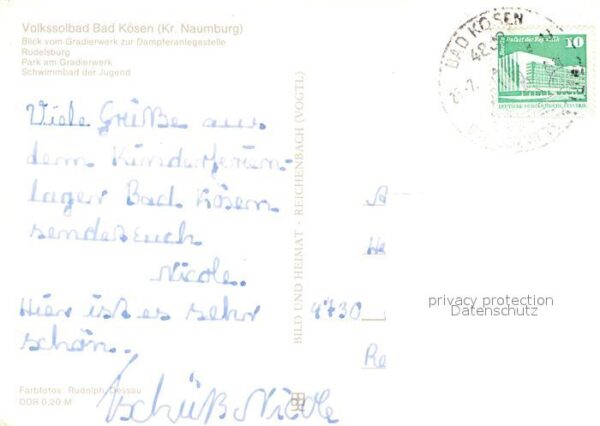 Volkssolbad Bad Kösen (Kr. Naumburg)
Blick vom Gradierwerk zur Dampferanlegestelle
Rudelsburg
Park am Gradierwerk
Schwimmbad der Jugend
Viele Grüße aus
dem Kinderferien-
lager Bad Kösen
sendet Euch
Nicole.
Hier ist es sehr
schön.
Tschüß Nicole
Farbfotos: Rudolph, Dessau
DDR 0,20 M
BILD UND HEIMAT · REICHENBACH (VOGTL)
BAD KÖSEN
10
A
He
9730
Re
privacy protection
Datenschutz